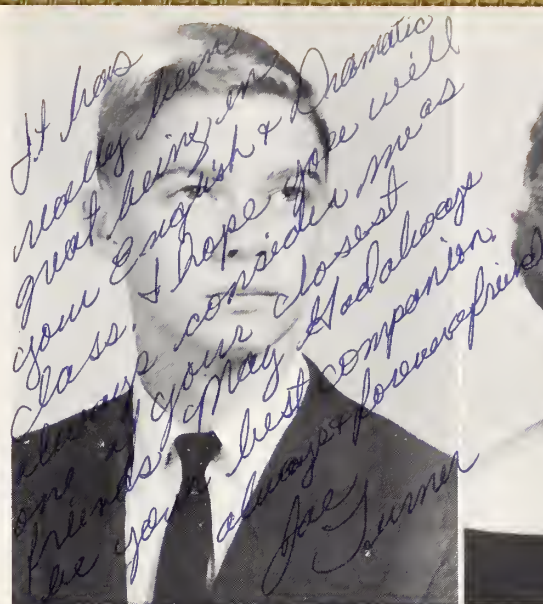 It has
really been
great being in
your English & Dramatic
class. I hope you will
always consider me as
one of your closest
friends. May God always
be your best companion.
always & forever friend
Joe
Turner